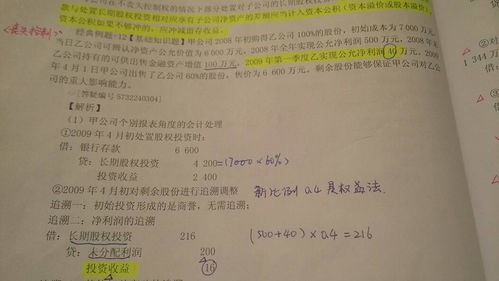 款与处置长期股权投资相对应享有子公司净资产的差额应当计入资本公积(资本溢价或股本溢价),
资本公积如果不够冲的,应冲减留存收益。
(丧失控制)
经典例题-12【基础知识题】甲公司2008年初购得乙公司100%的股份,初始成本为7 000万元,
当日乙公司可辨认净资产公允价值为6 000万元,2008年全年实现公允净利润500万元,2008年末
乙公司持有的可供出售金融资产增值100万元,2009年第一季度乙实现公允净利润40万元,2009
年4月1日甲公司出售了乙公司60%的股份,售价为6 600万元,剩余股份能够保证甲公司对乙公
司的重大影响能力。
[答疑编号5732240304]
【解析】
(1)甲公司个别报表角度的会计处理
①2009年4月初处置股权投资时:
借:银行存款 6 600
贷:长期股权投资 4 200 =(7000×60%)
投资收益 2 400
②2009年4月初对剩余股份进行追溯调整 新比例 0.4 是权益法.
追溯一:初始投资形成的是商誉,无需追溯;
追溯二:净利润的追溯
借:长期股权投资 216 (500+40)×0.4=216
贷:未分配利润 200
投资收益 16
1 344万